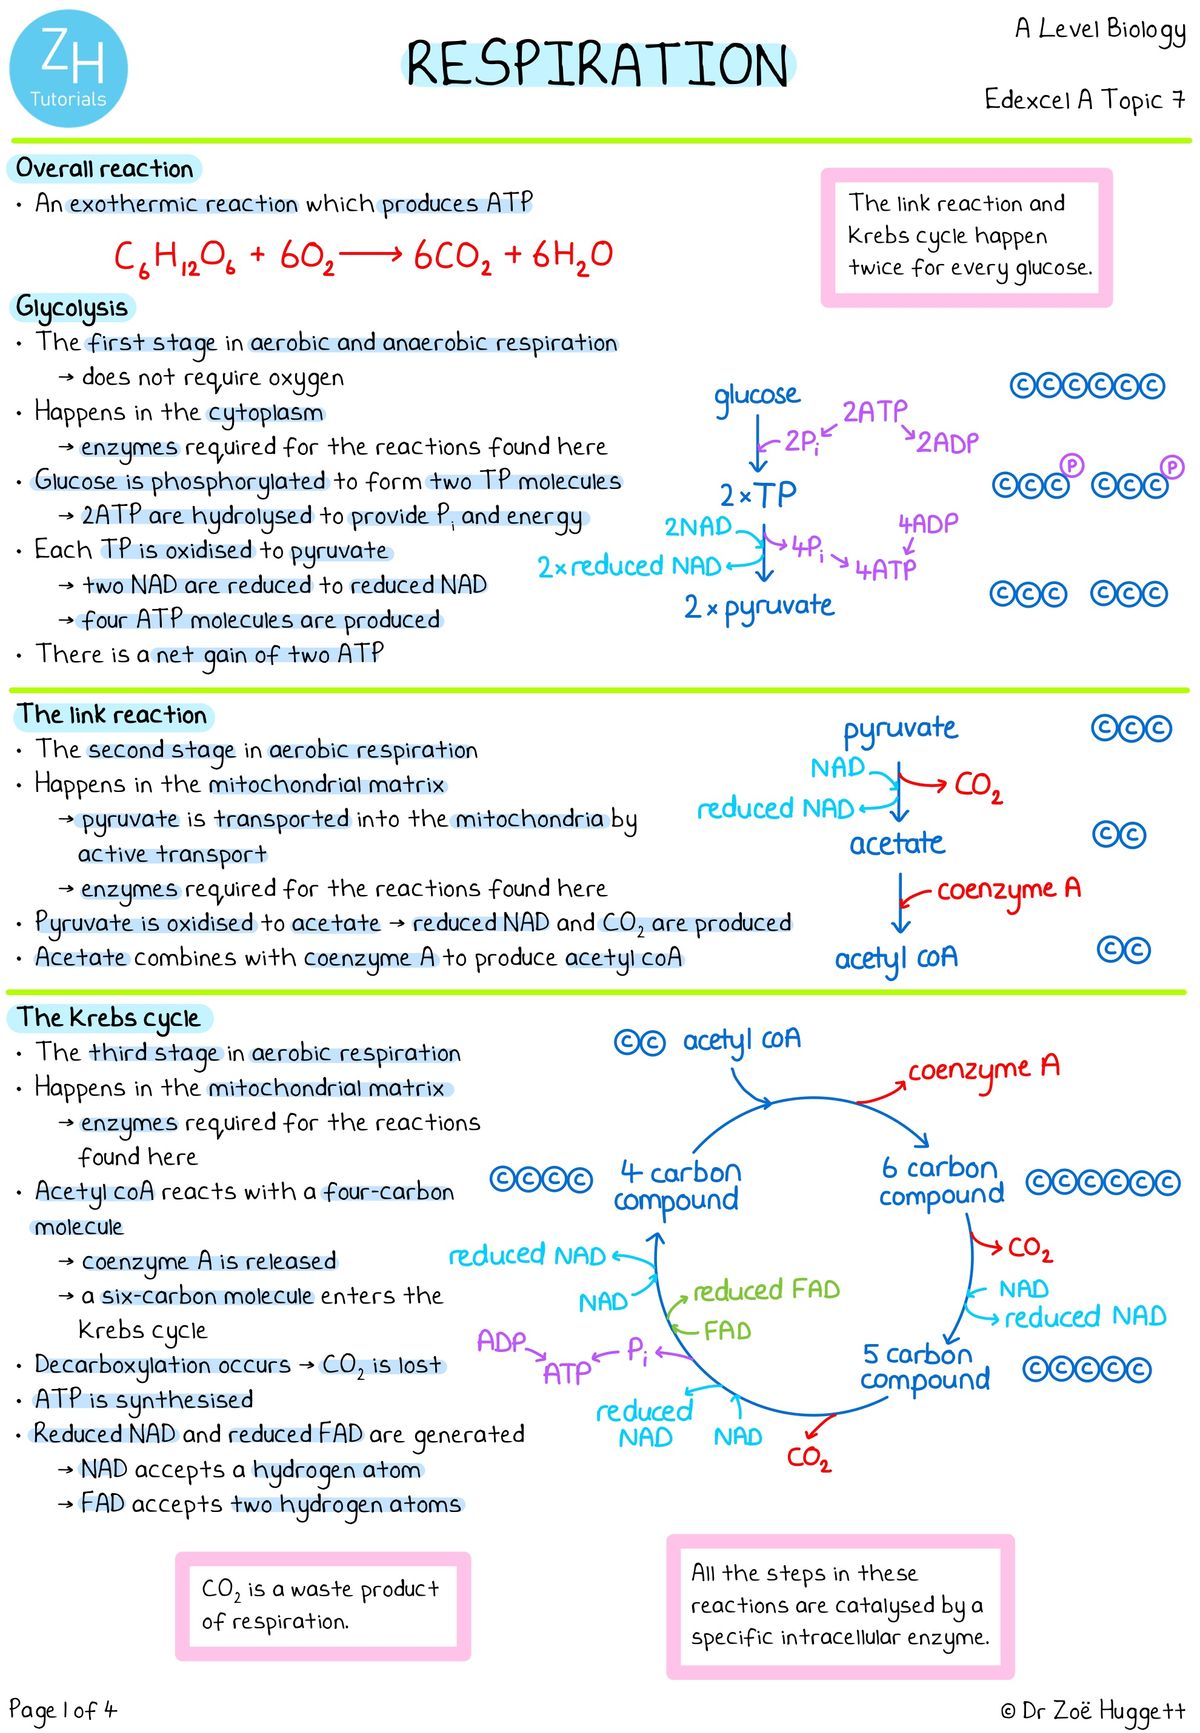 ZH
Tutorials
RESPIRATION
A Level Biology
Edexcel A Topic 7
Overall reaction
• An exothermic reaction which produces ATP
C₆H₁₂O₆ + 6O₂ → 6CO₂ + 6H₂O
The link reaction and
Krebs cycle happen
twice for every glucose.
Glycolysis
• The first stage in aerobic and anaerobic respiration
→ does not require oxygen
• Happens in the cytoplasm
→ enzymes required for the reactions found here
• Glucose is phosphorylated to form two TP molecules
→ 2ATP are hydrolysed to provide Pᵢ and energy
• Each TP is oxidised to pyruvate
→ two NAD are reduced to reduced NAD
→ four ATP molecules are produced
• There is a net gain of two ATP
glucose
C C C C C C
2ATP
2Pᵢ
2ADP
2 × TP
C C C P C C C P
2NAD
4ADP
4Pᵢ
2 × reduced NAD
4ATP
2 × pyruvate
C C C C C C
The link reaction
• The second stage in aerobic respiration
• Happens in the mitochondrial matrix
→ pyruvate is transported into the mitochondria by
active transport
→ enzymes required for the reactions found here
• Pyruvate is oxidised to acetate → reduced NAD and CO₂ are produced
• Acetate combines with coenzyme A to produce acetyl coA
pyruvate
C C C
NAD
CO₂
reduced NAD
acetate
C C
coenzyme A
acetyl coA
C C
The Krebs cycle
• The third stage in aerobic respiration
• Happens in the mitochondrial matrix
→ enzymes required for the reactions
found here
• Acetyl coA reacts with a four-carbon
molecule
→ coenzyme A is released
→ a six-carbon molecule enters the
Krebs cycle
• Decarboxylation occurs → CO₂ is lost
• ATP is synthesised
• Reduced NAD and reduced FAD are generated
→ NAD accepts a hydrogen atom
→ FAD accepts two hydrogen atoms
C C acetyl coA
coenzyme A
C C C C
4 carbon
compound
6 carbon
compound
C C C C C C
CO₂
NAD
reduced NAD
5 carbon
compound
C C C C C
CO₂
NAD
reduced
NAD
Pᵢ
ADP
ATP
FAD
reduced FAD
NAD
reduced NAD
CO₂ is a waste product
of respiration.
All the steps in these
reactions are catalysed by a
specific intracellular enzyme.
Page 1 of 4
© Dr Zoë Huggett